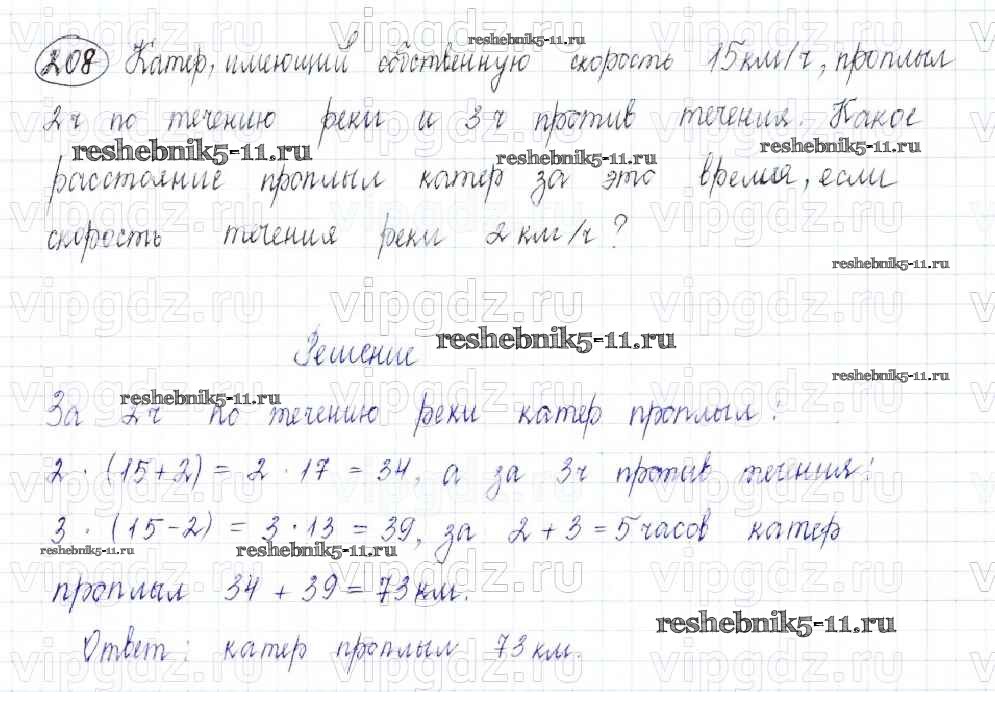 208 Катер, имеющий собственную скорость 15 км/ч, проплыл
2 ч по течению реки и 3 ч против течения. Какое
расстояние проплыл катер за это время, если
скорость течения реки 2 км/ч?
Решение
За 2 ч по течению реки катер проплыл:
2 · (15 + 2) = 2 · 17 = 34, а за 3 ч против течения:
3 · (15 - 2) = 3 · 13 = 39, за 2 + 3 = 5 часов катер
проплыл 34 + 39 = 73 км.
Ответ: катер проплыл 73 км.
reshebnik5-11.ru
vipgdz.ru